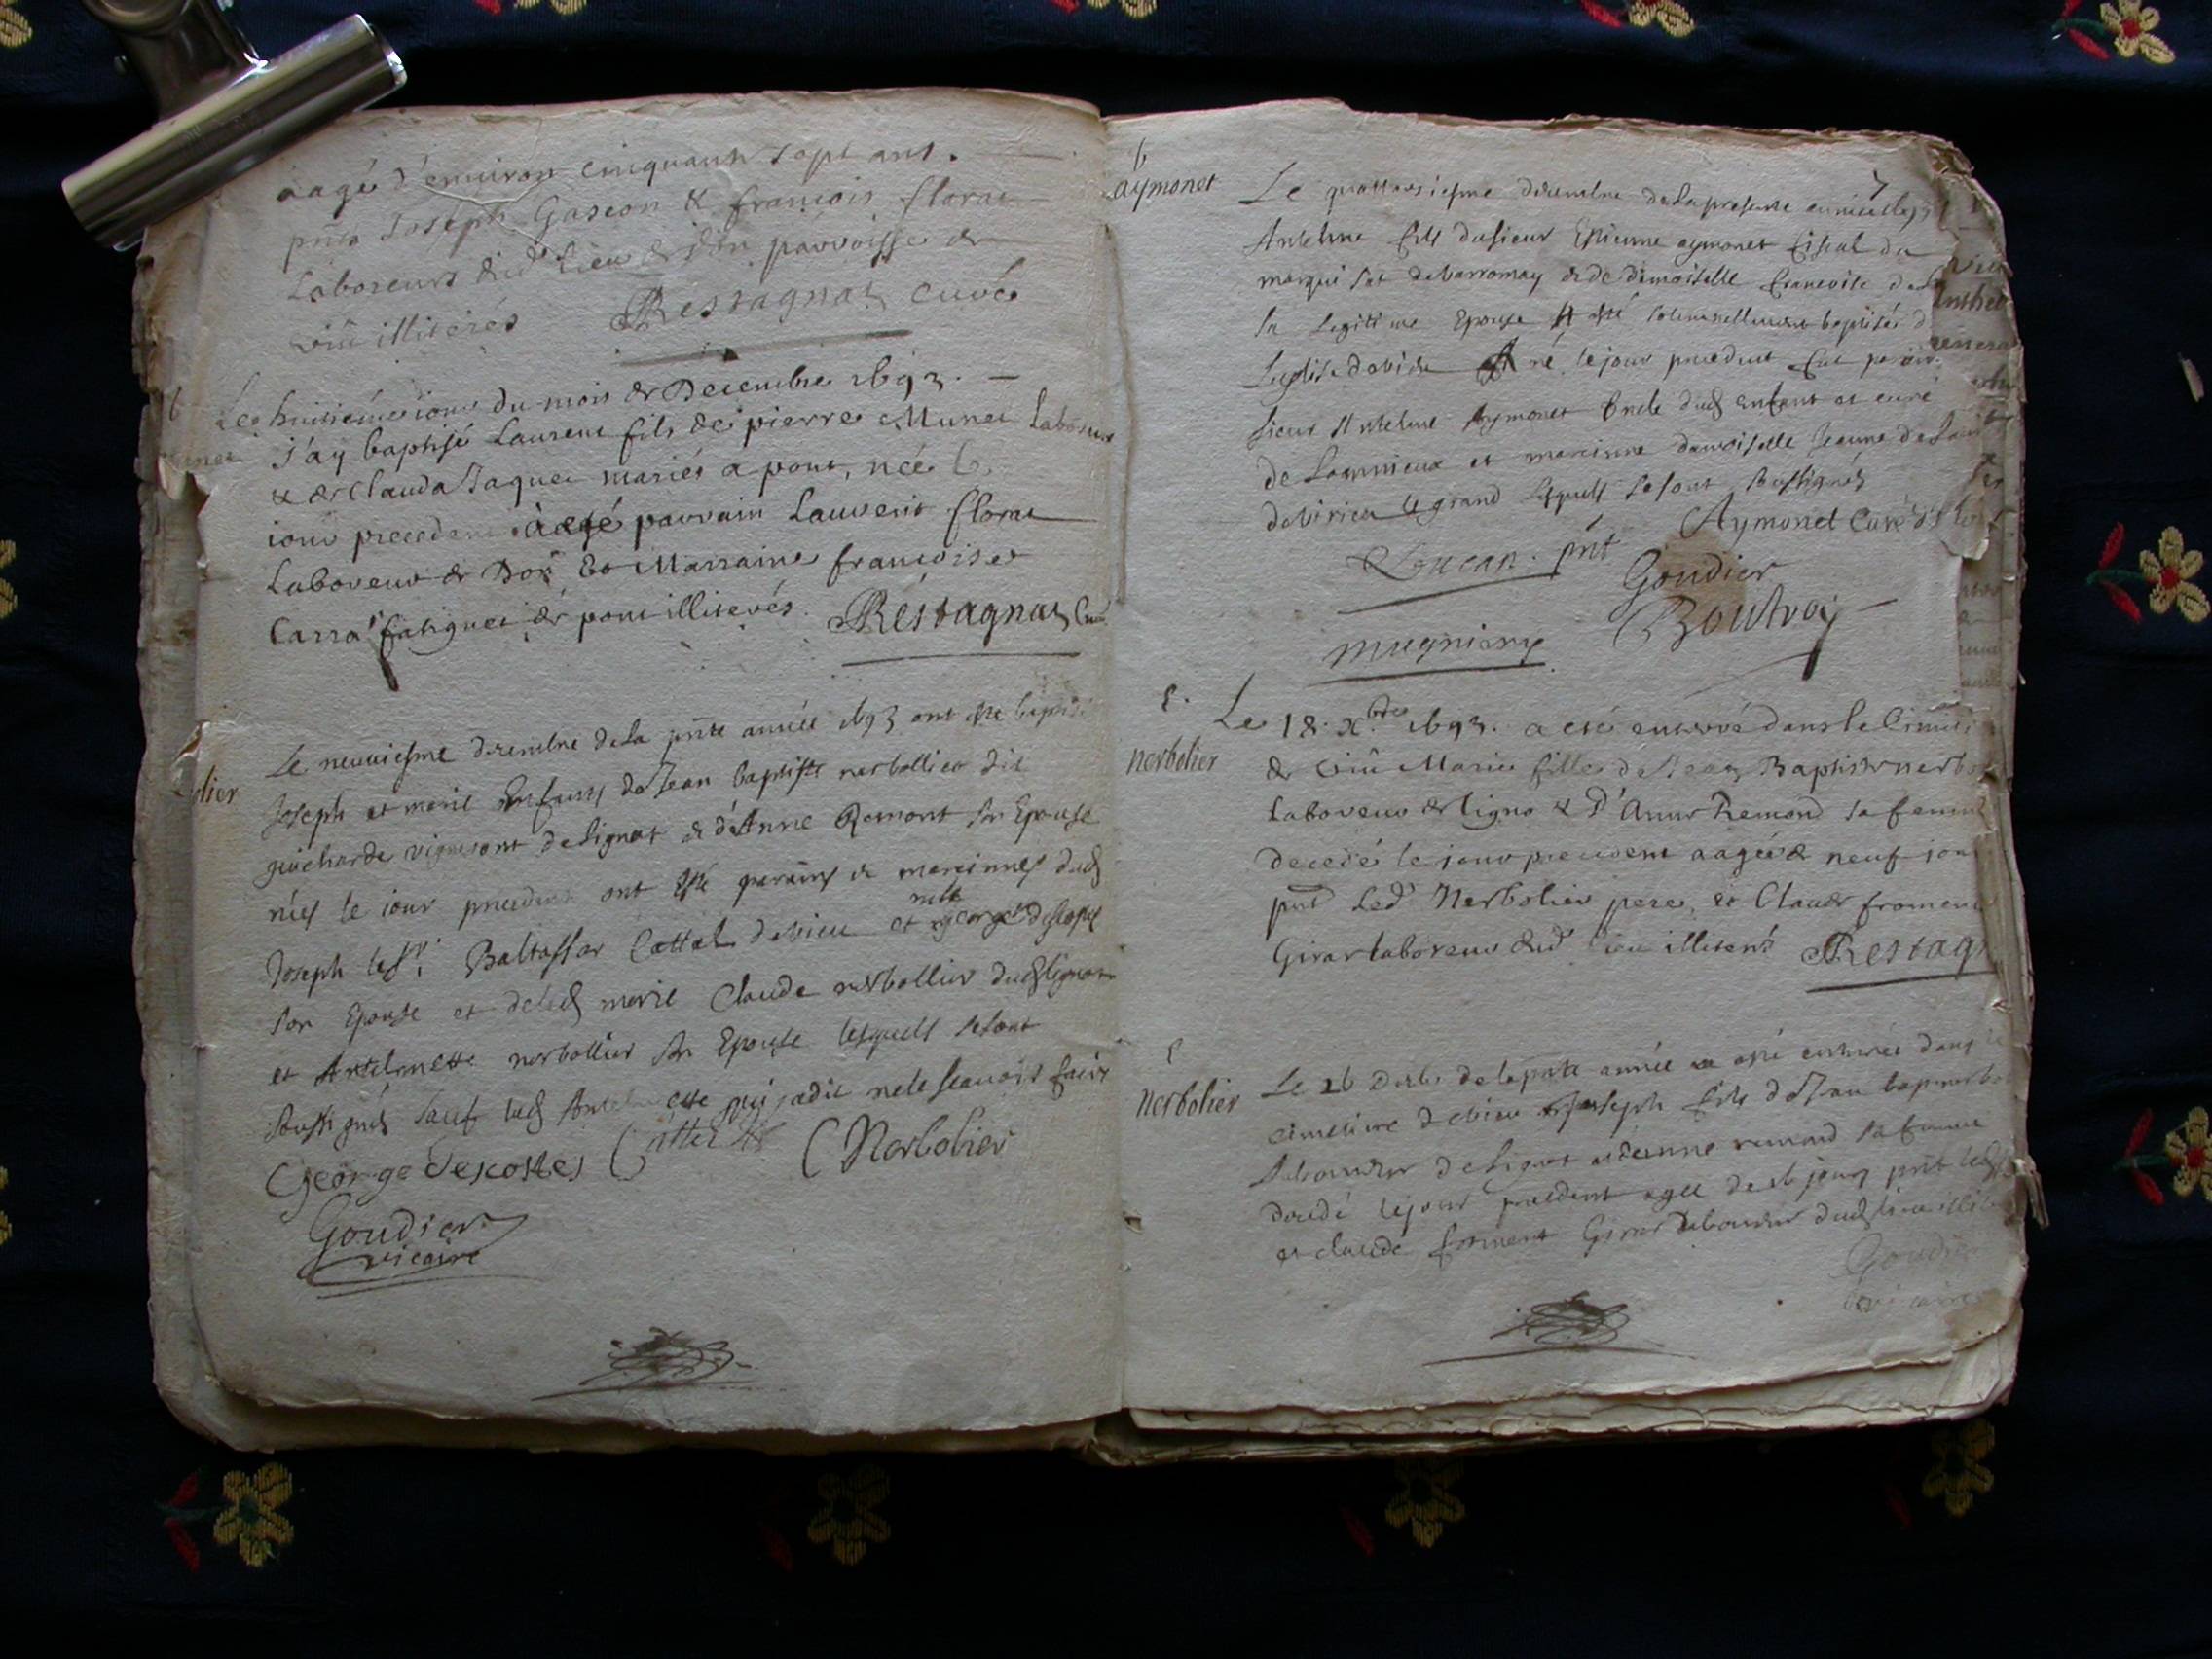 aagé d'environ cinquante sept ans.
pnts Joseph Gascon & françois floras
Laboreurs dud. lieu & parroisse de
viû illiterés Restagnat curé
Le huitiéme iour du mois de Decembre 1693.
J'ay baptisé Laurent fils de pierre Munet Laboreur
& de Clauda Jaquet mariés a pont, née le
iour precedent à esté parrain Laurent floras
Laboreur de Don Et Marraine françoise
Carra fatiguet de pont illiterés. Restagnat Curé
olier
Le neuuiesme decembre de la pnte année 1693 ont esté baptisé
Joseph et marie Enfans de Jean baptiste nerbollier dit
guicharde vigneront de Lignot & d'Anne Remont son Epouse
néez le iour precedent ont esté parains et marainnes dud
Joseph le Sr. Baltassar Cattel de vieu et george descostes
son Epouse et de lad marie Claude nerbollier dud lignot
et Antelmette nerbollier son Epouse lesquels se sont
soussignés sauf lad Antelmette qui a dit ne le scauoir faire
George descostes Nerbolier
Goudier
vicaire
6
aymonet
7
Le quattorsiesme decembre de la presente année 1693
Antelme fils du sieur Estienne aymonet fiscal du
marquisat de Varromay & de demoiselle francoise de
sa Legitime Epouse A esté solennellement baptisé d
Leglise de vieu né le jour precedent fut parain
sieur Antelme Aymonet oncle dud enfant et curé
de Lompnieux et marainne damoiselle Jeanne de
de Virieu le grand lesquels se sont soussignés
Aymonet Curé
Lucan. pnt
Goudier
mugnieny
Boutroy
E.
nerbolier
Le 18. Xbre 1693. a eté enterré dans le Cimeti
de viû Marie fille de Jean Baptiste nerbo
Laboreur de ligno & d'Anne Remond sa femme
decedé le jour precedent aagée de neuf jours
pnt led. Nerbolier pere, et Claude froment
Girar laboreur dud. lieu illiterés Restagn
E
nerbolier
Le 26 Decbr de la pnte année a esté enterrée dans le
cimetiere de vieu Joseph fils de Jean bap nerbo
Laboureur de Lignot et danne remond sa femme
decedé le jour precedent agee de 16 jours pnt led
et claude froment Girar Laboureur dud lieu illite
Goudier
vicaire